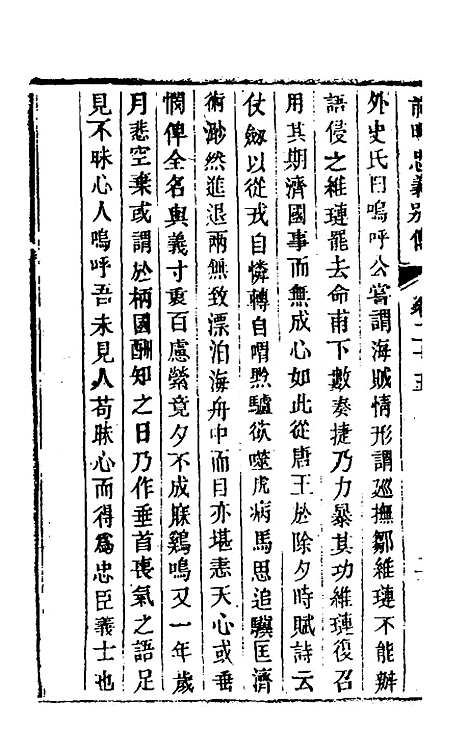 前明忠義別傳 卷二十五
外史氏曰嗚呼公嘗謂海賊情形謂廵撫鄒維璉不能辦
語侵之維璉罷去命甫下數奏捷乃力暴其功維璉復召
用其期濟國事而無成心如此從唐王於除夕時賦詩云
仗劒以從戎自憐轉自喟黔驢欲噬虎病馬思追驥匡濟
術渺然進退兩無致漂泊海舟中面目亦堪恚天心或垂
憫俾全名與義寸衷百慮縈竟夕不成寐鷄鳴又一年歲
月悲空棄或謂於柄國酬知之日乃作垂首喪氣之語足
見不昧心人嗚呼吾未見人苟昧心而得爲忠臣義士也